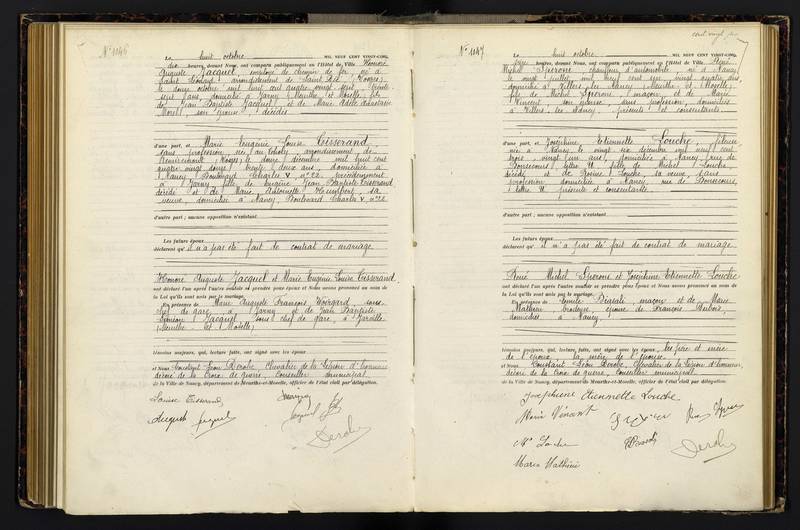 N° 1146
Le huit octobre MIL NEUF CENT VINGT-CINQ,
dix heures, devant Nous, ont comparu publiquement en l'Hôtel de Ville Honoré
Auguste Jacquel, employé de chemin de fer, né à
Saint Léonard, arrondissement de Saint Dié (Vosges),
le douze octobre mil huit cent quatre vingt sept, trente
sept ans, domicilié à Jarny (Meurthe et Moselle), fils
de Jean Baptiste Jacquel et de Marie Adèle
Morel, son épouse, décédés
d'une part, et Marie Eugénie Louise Cisserand,
sans profession, née au Tholy, arrondissement de
Remiremont (Vosges) le douze décembre mil huit cent
quatre vingt douze, trente deux ans, domiciliée à
Nancy, Boulevard Charles V, n° 22, précédemment
à Jarny, fille de Eugène Jean Baptiste Cisserand,
décédé et de Marie Antoinette Humbert, sa
veuve, domiciliée à Nancy, Boulevard Charles V, n° 22
d'autre part ; aucune opposition n'existant
Les futurs époux
déclarent qu'il n'a pas été fait de contrat de mariage
Honoré Auguste Jacquel et Marie Eugénie Louise Cisserand
ont déclaré l'un après l'autre vouloir se prendre pour époux et Nous avons prononcé au nom de
la Loi qu'ils sont unis par le mariage.
En présence de Marie Auguste François Voirgard, sous
chef de gare, à Jarny et de Jean Baptiste
Siméon Jacquel, sous chef de gare, à Jarville
(Meurthe et Moselle)
témoins majeurs, qui, lecture faite, ont signé avec les époux
et Nous Constant Léon Déroche, Chevalier de la Légion d'honneur
décoré de la Croix de guerre, Conseiller municipal
de la Ville de Nancy, département de Meurthe-et-Moselle, officier de l'état civil par délégation.
Louise Cisserand
Auguste Jacquel
Jacquel
N° 1147
Le huit octobre MIL NEUF CENT VINGT-CINQ,
onze heures, devant Nous, ont comparu publiquement en l'Hôtel de Ville René
Michel Sperone, chauffeur d'automobile, né à Nancy
le vingt juillet mil neuf cent un, vingt quatre ans
domicilié à Villers les Nancy (Meurthe et Moselle),
fils de Michel Sperone, maçon, et de Marie
Vincent, son épouse, sans profession, domiciliés
à Villers les Nancy, présents et consentants
d'une part, et Joséphine Etiennette Louche,
née à Nancy le vingt six décembre mil neuf cent
trois, vingt un ans, domiciliée à Nancy, rue de
Bonsecours, lettre U, fille de Michel Louche
décédé et de Louche, sa veuve, sans
profession, domiciliée à Nancy, rue de Bonsecours,
lettre U, présente et consentante
d'autre part ; aucune opposition n'existant
Les futurs époux
déclarent qu'il n'a pas été fait de contrat de mariage
René Michel Sperone et Joséphine Etiennette Louche
ont déclaré l'un après l'autre vouloir se prendre pour époux et Nous avons prononcé au nom de
la Loi qu'ils sont unis par le mariage.
En présence de maçon et de Marie
Mathieu, brodeuse, épouse de François Dubois,
domiciliés à Nancy
témoins majeurs, qui, lecture faite, ont signé avec les époux, les père et mère
de l'époux, la mère de l'épouse
et Nous Constant Léon Déroche, Chevalier de la Légion d'honneur,
décoré de la Croix de guerre, Conseiller municipal
de la Ville de Nancy, département de Meurthe-et-Moselle, officier de l'état civil par délégation.
Joséphine Etiennette Louche
Marie
Mathieu